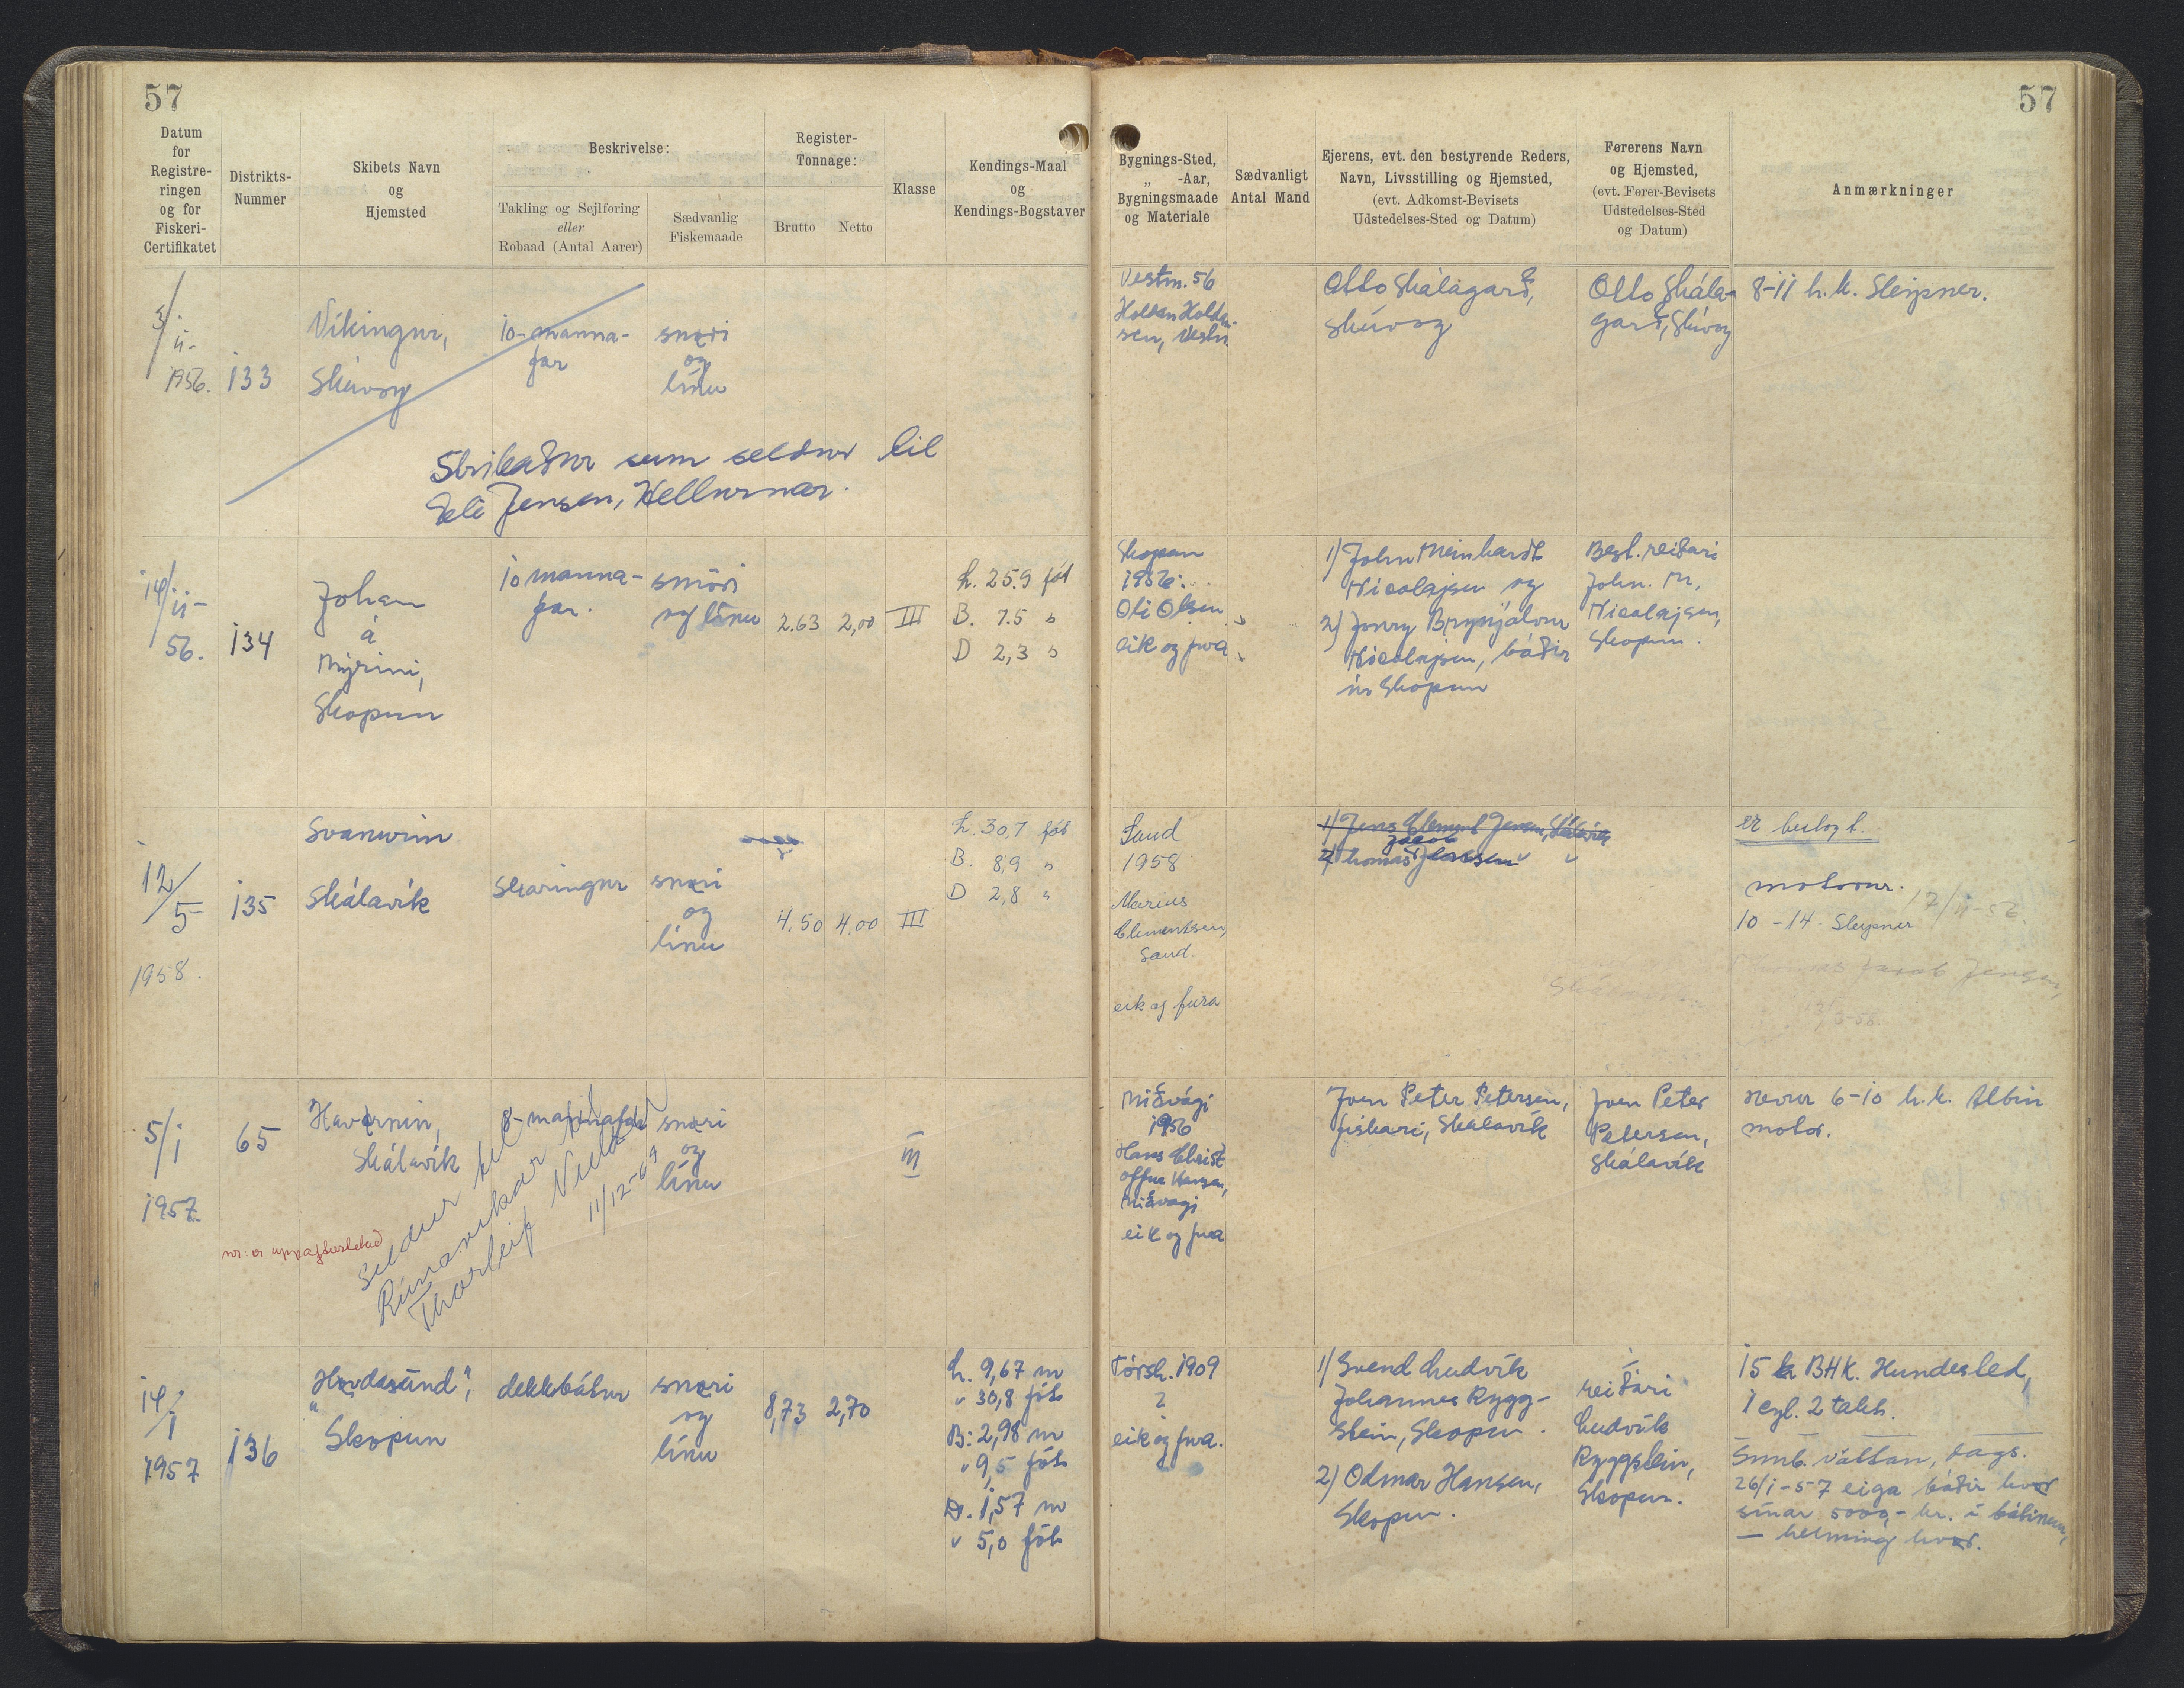 57
57
Datum
for
Registre-
ringen
og for
Fiskeri-
Certifikatet
Distrikts-
Nummer
Skibets Navn
og
Hjemsted
Beskrivelse:
Takling og Sejlføring
eller
Robaad (Antal Aarer)
Sædvanlig
Fiskemaade
Register-
Tonnage:
Brutto
Netto
Klasse
Kendings-Maal
og
Kendings-Bogstaver
Bygnings-Sted,
„ -Aar,
Bygningsmaade
og Materiale
Sædvanligt
Antal Mand
Ejerens, evt. den bestyrende Reders,
Navn, Livsstilling og Hjemsted,
(evt. Adkomst-Bevisets
Udstedelses-Sted og Datum)
Førerens Navn
og Hjemsted,
(evt. Fører-Bevisets
Udstedelses-Sted
og Datum)
Anmærkninger
11-
1956.
133
Víkingur,
Skúvoy
10-manna-
far
snøri
og
línu
Strikaður sum seldur til
Jensen, Hellurnar.
Vestm. 56
Otto Skálagarð,
Skúvoy
Otto Skála-
garð, Skúvoy
8-11 h.k. Sleipner.
14/11-
56.
134
Johan
á
Mýrini,
Skopun
10 manna-
far.
snøri
og línu
2.63
2,00
III
L. 25.9 fót
B. 7.5 "
D 2,3 "
Skopun
1956.
Oli Olsen
eik og fura
1) John Meinhardt
Nicolajsen og
2) Jonny Brynjálvur
Nicolajsen, báðir
úr Skopun
Best. reiðari
John. M.
Nicolajsen,
Skopun.
12/5
1958.
135
Svanurin
Skálavík
Skaringur
snøri
og
línu
4.50
4.00
III
L. 30,7 fót
B. 8,9 "
D 2,8 "
Sand
1958
Marius
Clementsen,
Sand.
eik og fura
1) Jens Clement Jensen, Skálavík
Jákob
2) Thomas Jensen
er beslegt.
motorur.
10-14 Sleipner
17/11-56.
Jacob Jensen,
5/1
1957.
65
Havørnin,
Skálavík
8-mannafar
snøri
og
línu
III
nr: er uppafturlatað
Seldur til
Rúnavíkar til
Thorleif
11/12-69
Miðvági
1956
Hans Christ-
offur Hansen,
Miðvági
eik og fura
Joen Peter Petersen,
fiskari, Skálavík
Joen Peter
Petersen,
Skálavík
hevur 6-10 h.k. Albin
motor.
14/1
1957
136
"Hovdasund",
Skopun
dekkbátur
snøri
og
línu
8,73
2,70
L. 9,67 m
" 30,8 fót
B: 2,98 m
" 9,5 fót
D. 1,57 m
" 5,0 fót
Tórsh. 1909
?
eik og fura.
1) Svend Ludvík
Johannes Rygg-
stein, Skopun.
2) Odmar Hansen,
Skopun.
reiðari
Ludvík
Ryggstein,
Skopun.
15 BHK. Hundested,
1 cyl. 2 takts.
Samb. váttan, dags.
26/1-57 eiga báðir hvør
sínar 5000,- kr. í bátinum,
— helming hvør.